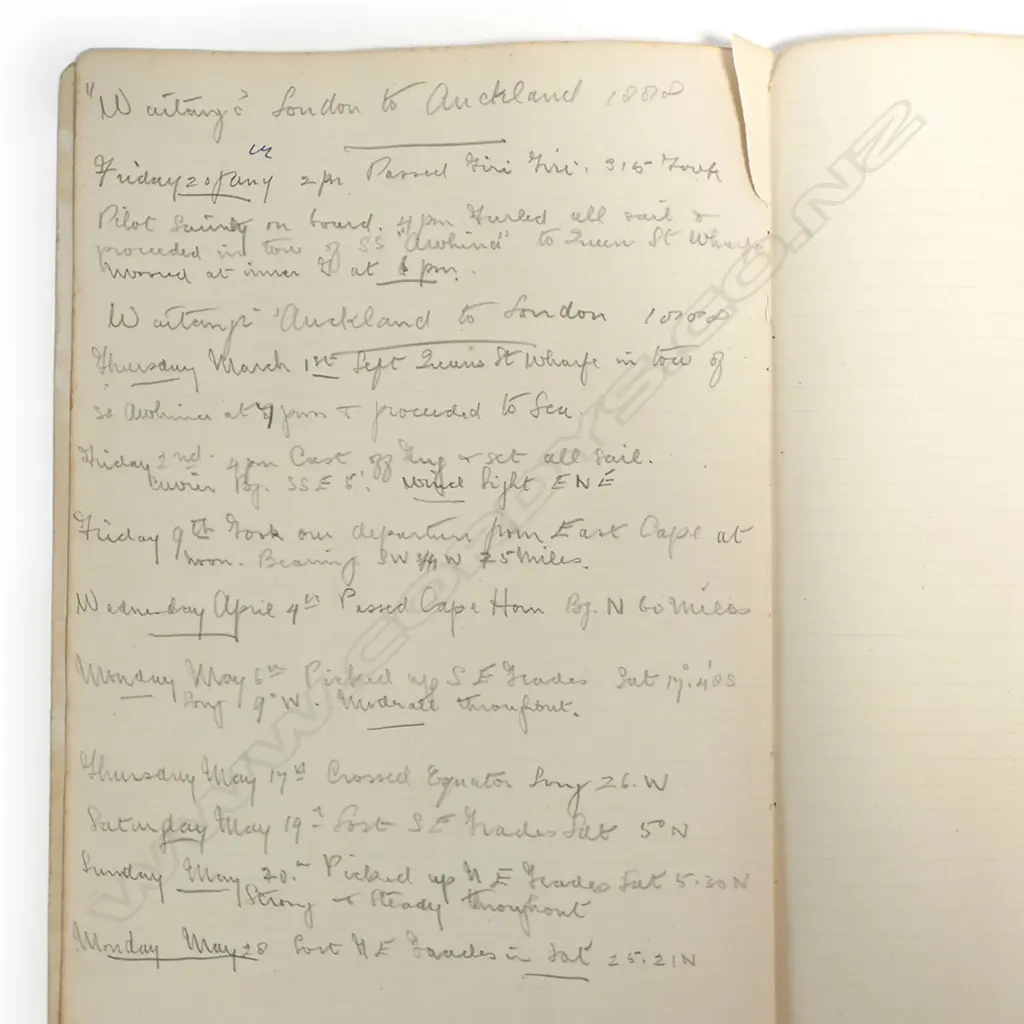 "Waitangi" London to Auckland 1888
Friday 20th Jany 2 pm Passed Tiri Tiri. 3.15 Took
Pilot on board. 4 pm Furled all sail &
proceeded in tow of SS "Awhina" to Queen St Wharfe
Moored at inner T at pm.
Waitangi Auckland to London 1888
Thursday March 1st Left Queens St Wharfe in tow of
SS Awhina at 7 pm & proceeded to Sea.
Friday 2nd. 4 pm Cast off Tug & set all Sail.
Cuvier Bg. SSE 5'. Wind light ENE
Friday 9th Took our departure from East Cape at
noon. Bearing SW 3/4 W 25 Miles.
Wednesday April 4th Passed Cape Horn Bg. N 60 Miles
Monday May 6th Picked up S E Trades Lat 17°.48S
Long 9°W. Moderate throughout.
Thursday May 17th Crossed Equator Long 26.W
Saturday May 19th Lost S E Trades Lat 5°N
Sunday May 20th Picked up N E Trades Lat 5.30N
Strong & Steady throughout
Monday May 28 Lost N E Trades in Lat 25.21N
WWW.CORDYS.CO.NZ